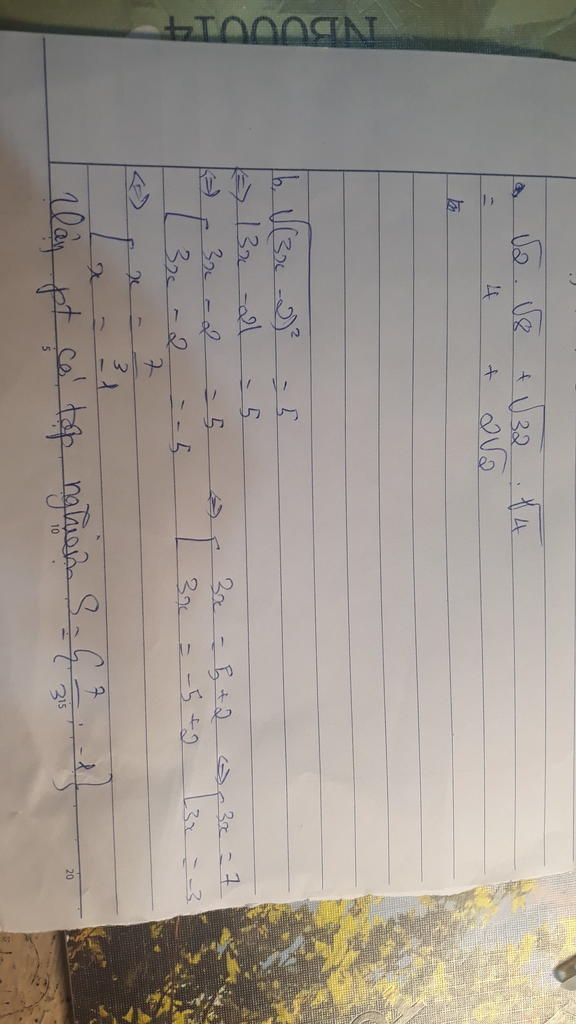 NB00014
a. √2 . √8 + √32 . √4
= 4 + 2√2
b. √(3x - 2)² = 5
<=> |3x - 2| = 5
<=> [ 3x - 2 = 5 <=> [ 3x = 5 + 2 <=> [ 3x = 7
3x - 2 = -5 3x = -5 + 2 3x = -3
<=> [ x = 7/3
x = -1
Vậy pt có tập nghiệm S = { 7/3 ; -1 }
5 10 15 20